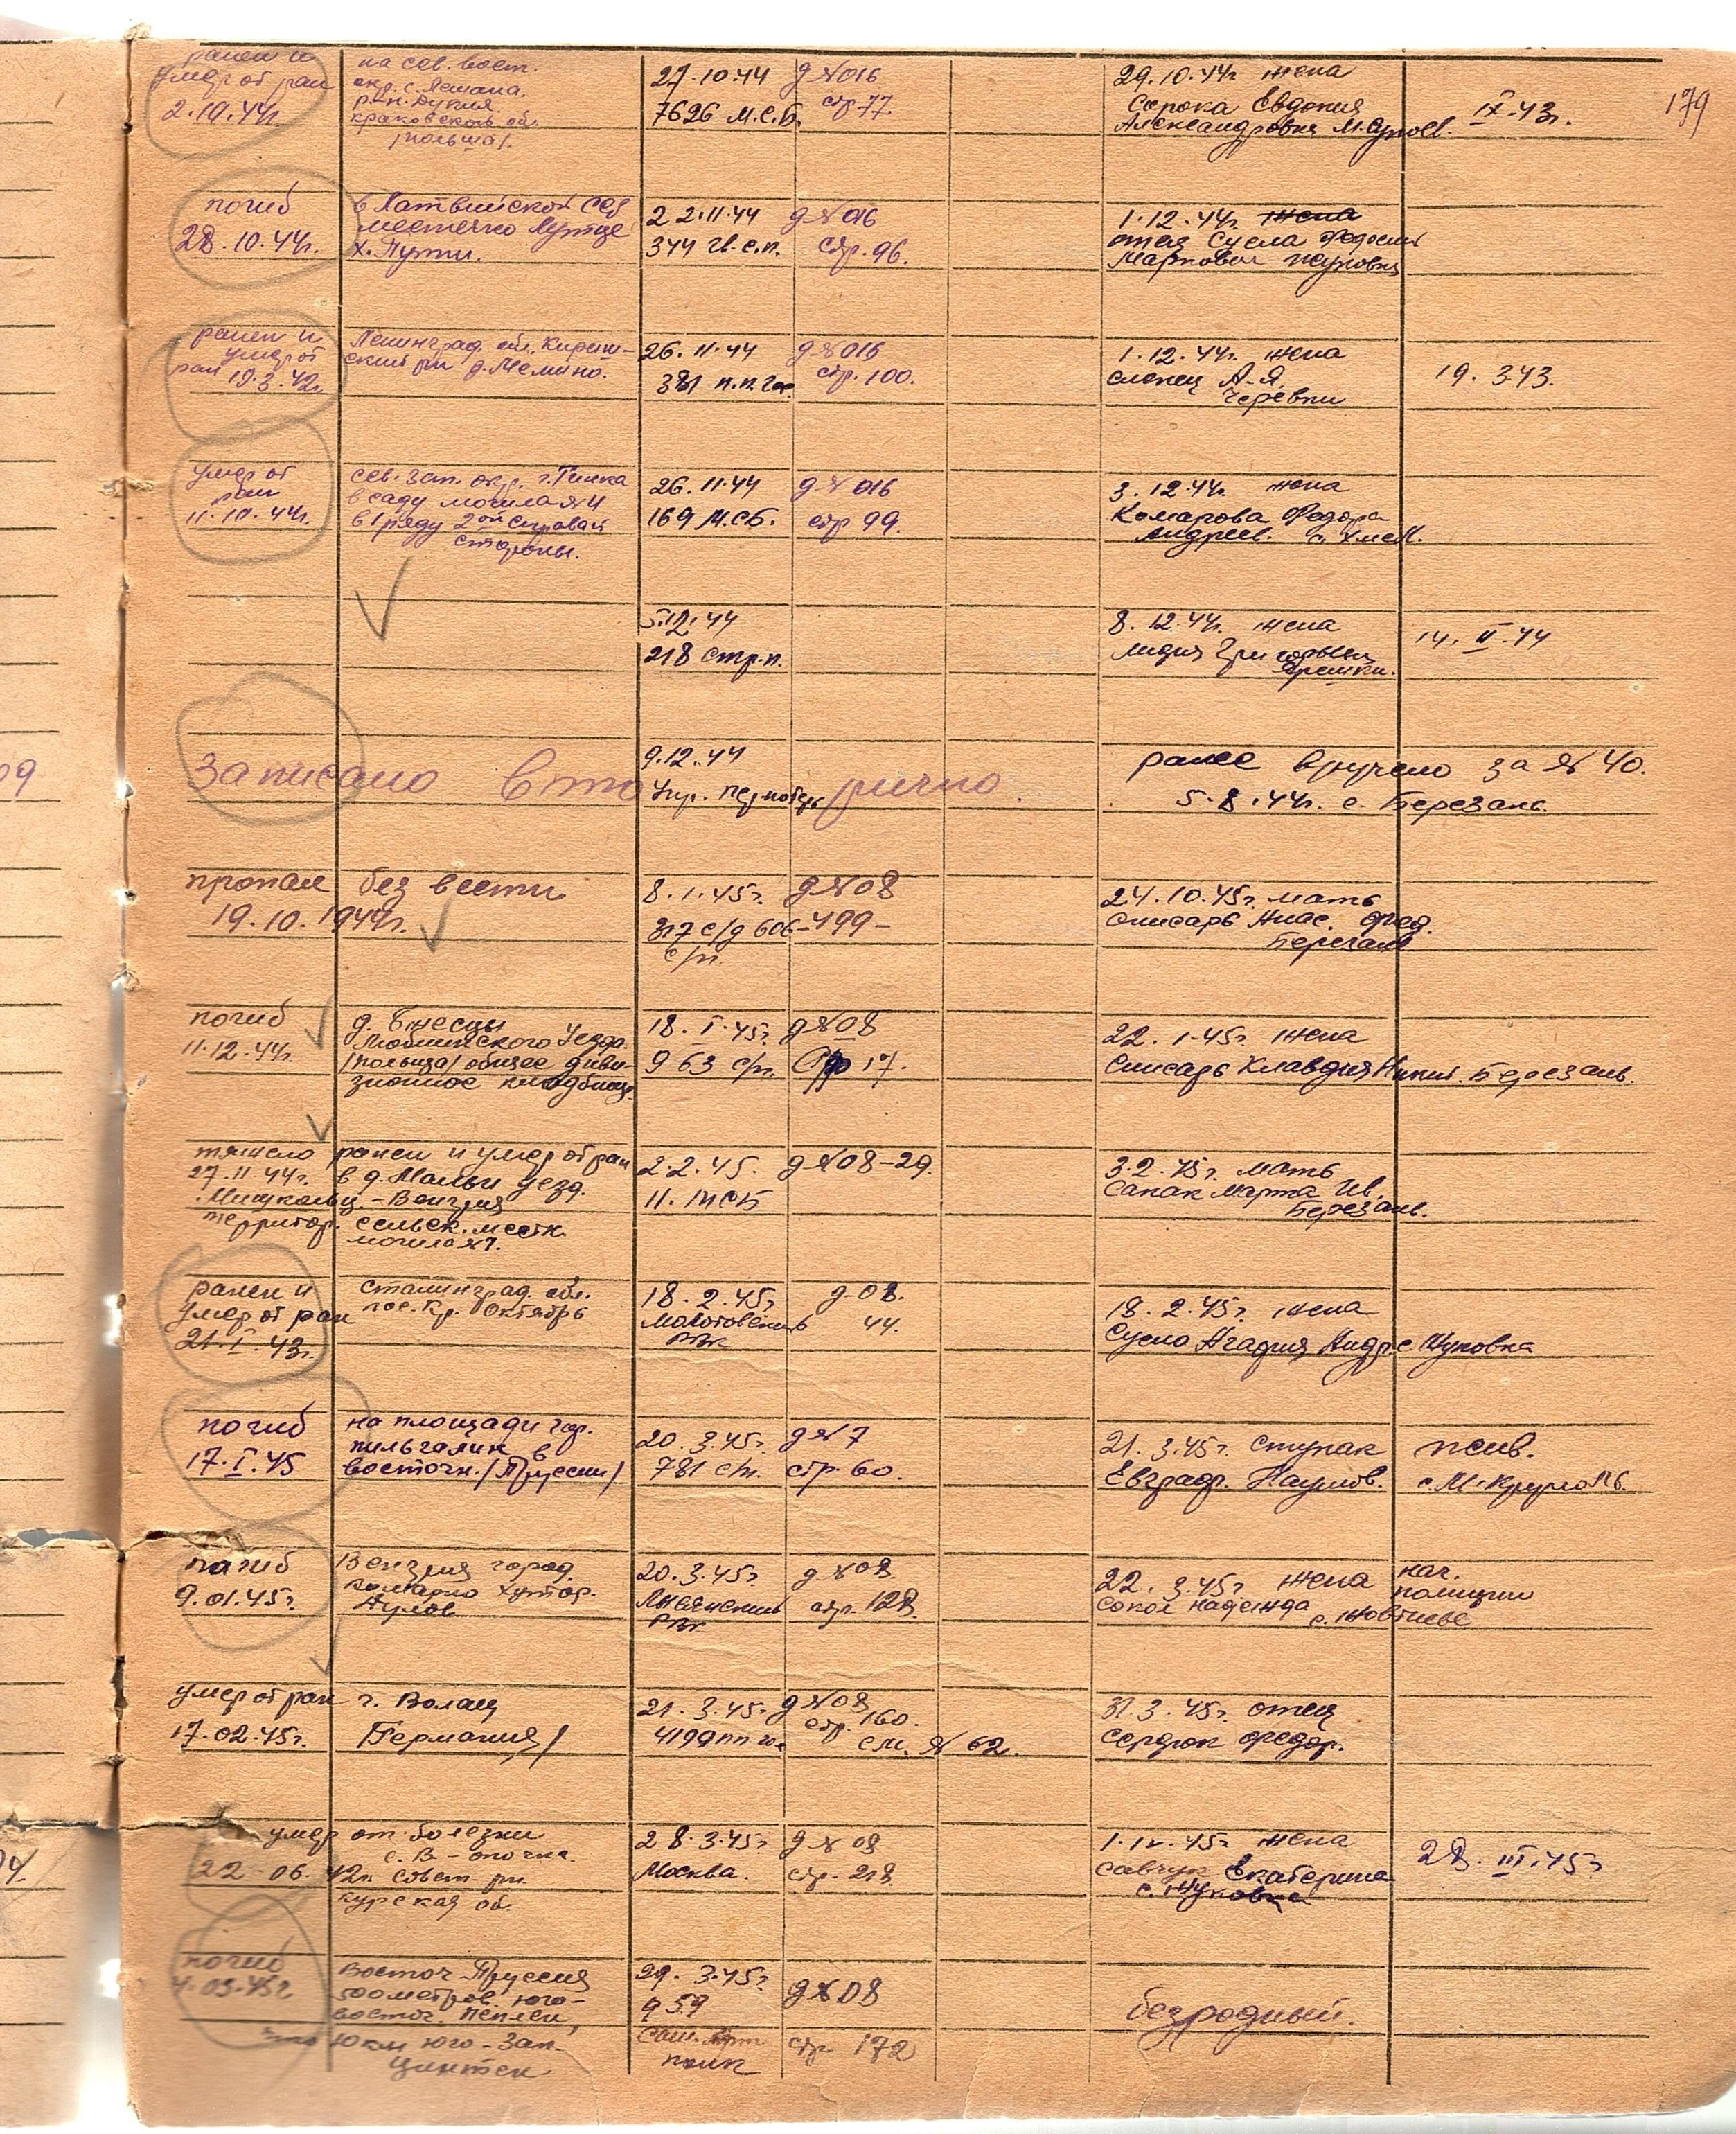 179
ранен и
умер от ран
2.10.44г.
на сев. вост.
окр. с.
р-н. Дукля.
краковской об.
/польша/.
27.10.44
7626 М.С.Б.
д №016
стр 77
29.10.44г. жена
Сорока Евдокия
Александровна
IX-43г.
погиб
28.10.44г.
в Латвийской ССР
местечко
х. Путни.
22.11.44
344 гв.с.п.
д №016
стр.96.
1.12.44г. жена
отец Сусла Федосий
Маркович Жуковка
ранен и
умер от
ран 19.3.42г.
Ленинград. обл. Кириш-
ский рн д. Мемино.
26.11.44
381 п.п.Гос.
д №016
стр.100.
1.12.44г. жена
слепец А.Я.
Черевки
19.3.43.
умер от
ран
11.10.44г.
сев. зап. окр. г.
в саду могила №4
в 1 ряду 2ой с правой
стороны.
26.11.44
169 М.СБ.
д №016
стр 99.
3.12.44г. жена
Комарова Федора
Андреев.
5.12.44
218 стр.п.
8.12.44г. жена
Лидия Григорьевна
14. II-44
записано вторично.
9.12.44
Упр.
ранее вручено за № 40.
5.8.44г. с. Березань.
пропал без вести
19.10.1944г.
8.1.45г.
317 с/д 606
с/п.
д №08
-499-
24.10.45г. мать
Слисарь Анас. Фед.
Березань
погиб
11.12.44г.
д.
Уезда
/польша/ общее диви-
зионное кладбище.
18.I.45г.
963 с/п.
д №08
Стр 17.
22.1.45г. жена
Слисарь Клавдия Никит. Березань.
тяжело ранен и умер от ран
27.11.44г. в д. Мальи уезд.
Мишкольц - Венгрия
территор. сельск. местн.
могила №7.
2.2.45.
11. МСБ
д №08-29.
3.2.45г. мать
Сапак Марта Ив.
Березань.
ранен и
умер от ран
21.I.43г.
Сталинград. обл.
пос. Кр. Октябрь
18.2.45г
Молотовский
РВК
д-08.
44.
18.2.45г. жена
Сусло Агафия Андре Жуковка
погиб
17.I.45
на площади гор.
пильгалик в
восточн. /Пруссии/
20.3.45г.
781 с/п.
д №7
стр.60.
21.3.45г. Ступак
Евграф. Наумов.
с.М.Круполь.
погиб
9.01.45г.
Венгрия город.
комарно хутор.
Дулов
20.3.45г.
РВК
д №08.
стр.128.
22.3.45г. жена
Сокол Надежда
нач.
полиции
умер от ран
17.02.45г.
г. Волац
Германия/
21.3.45г.
4199 пп гос
д №08
стр.160.
см. № 62.
31.3.45г. отец
Сердюк Федор.
умер от болезни
22-06.42г.
Совет рн
курская об.
28.3.45г
Москва.
д № 08
стр.218
1.IV.45г жена
Савчук Екатерина
с. Жуковка
28.III.45г
погиб
4.03.45г
Восточ. Пруссия
500 метров юго-
восточ.
10 км юго-зап.
Цинтен
29.3.45г
959
полк
д №08
стр 172
безродный.